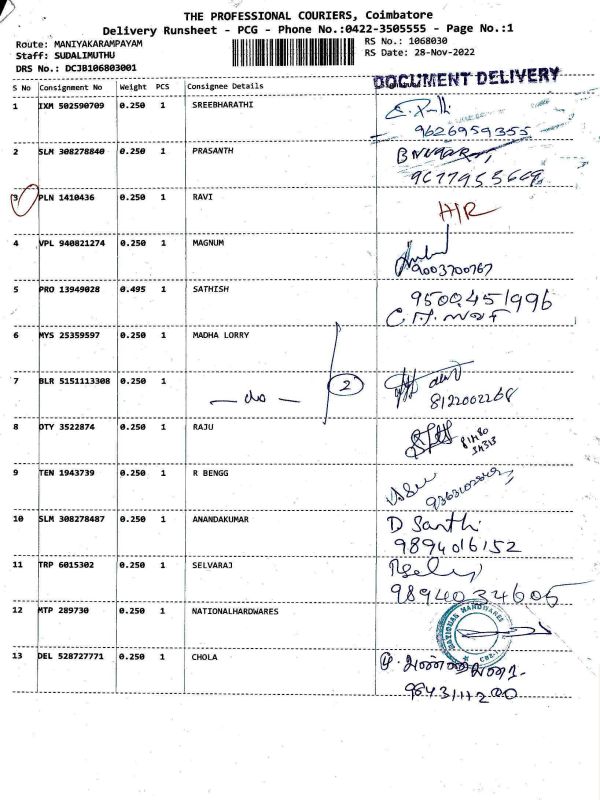 THE PROFESSIONAL COURIERS, Coimbatore
Delivery Runsheet - PCG - Phone No.:0422-3505555 - Page No.:1
Route: MANIYAKARAMPAYAM
RS No.: 1068030
Staff: SUDALIMUTHU
RS Date: 28-Nov-2022
DRS No.: DCJB106803001
DOCUMENT DELIVERY
S No Consignment No Weight PCS Consignee Details
1 IXM 502590709 0.250 1 SREEBHARATHI
9626959355
2 SLM 308278840 0.250 1 PRASANTH
3 PLN 1410436 0.250 1 RAVI
4 VPL 940821274 0.250 1 MAGNUM
9003700767
5 PRO 13949028 0.495 1 SATHISH
9500451996
6 MYS 25359597 0.250 1 MADHA LORRY
7 BLR 5151113308 0.250 1 — do — 2
8122002268
8 DTY 3522874 0.250 1 RAJU
9 TEN 1943739 0.250 1 R BENGG
10 SLM 308278487 0.250 1 ANANDAKUMAR D Santhi
9894016152
11 TRP 6015302 0.250 1 SELVARAJ
9894034605
12 MTP 289730 0.250 1 NATIONALHARDWARES
NATIONAL HARDWARES
13 DEL 528727771 0.250 1 CHOLA